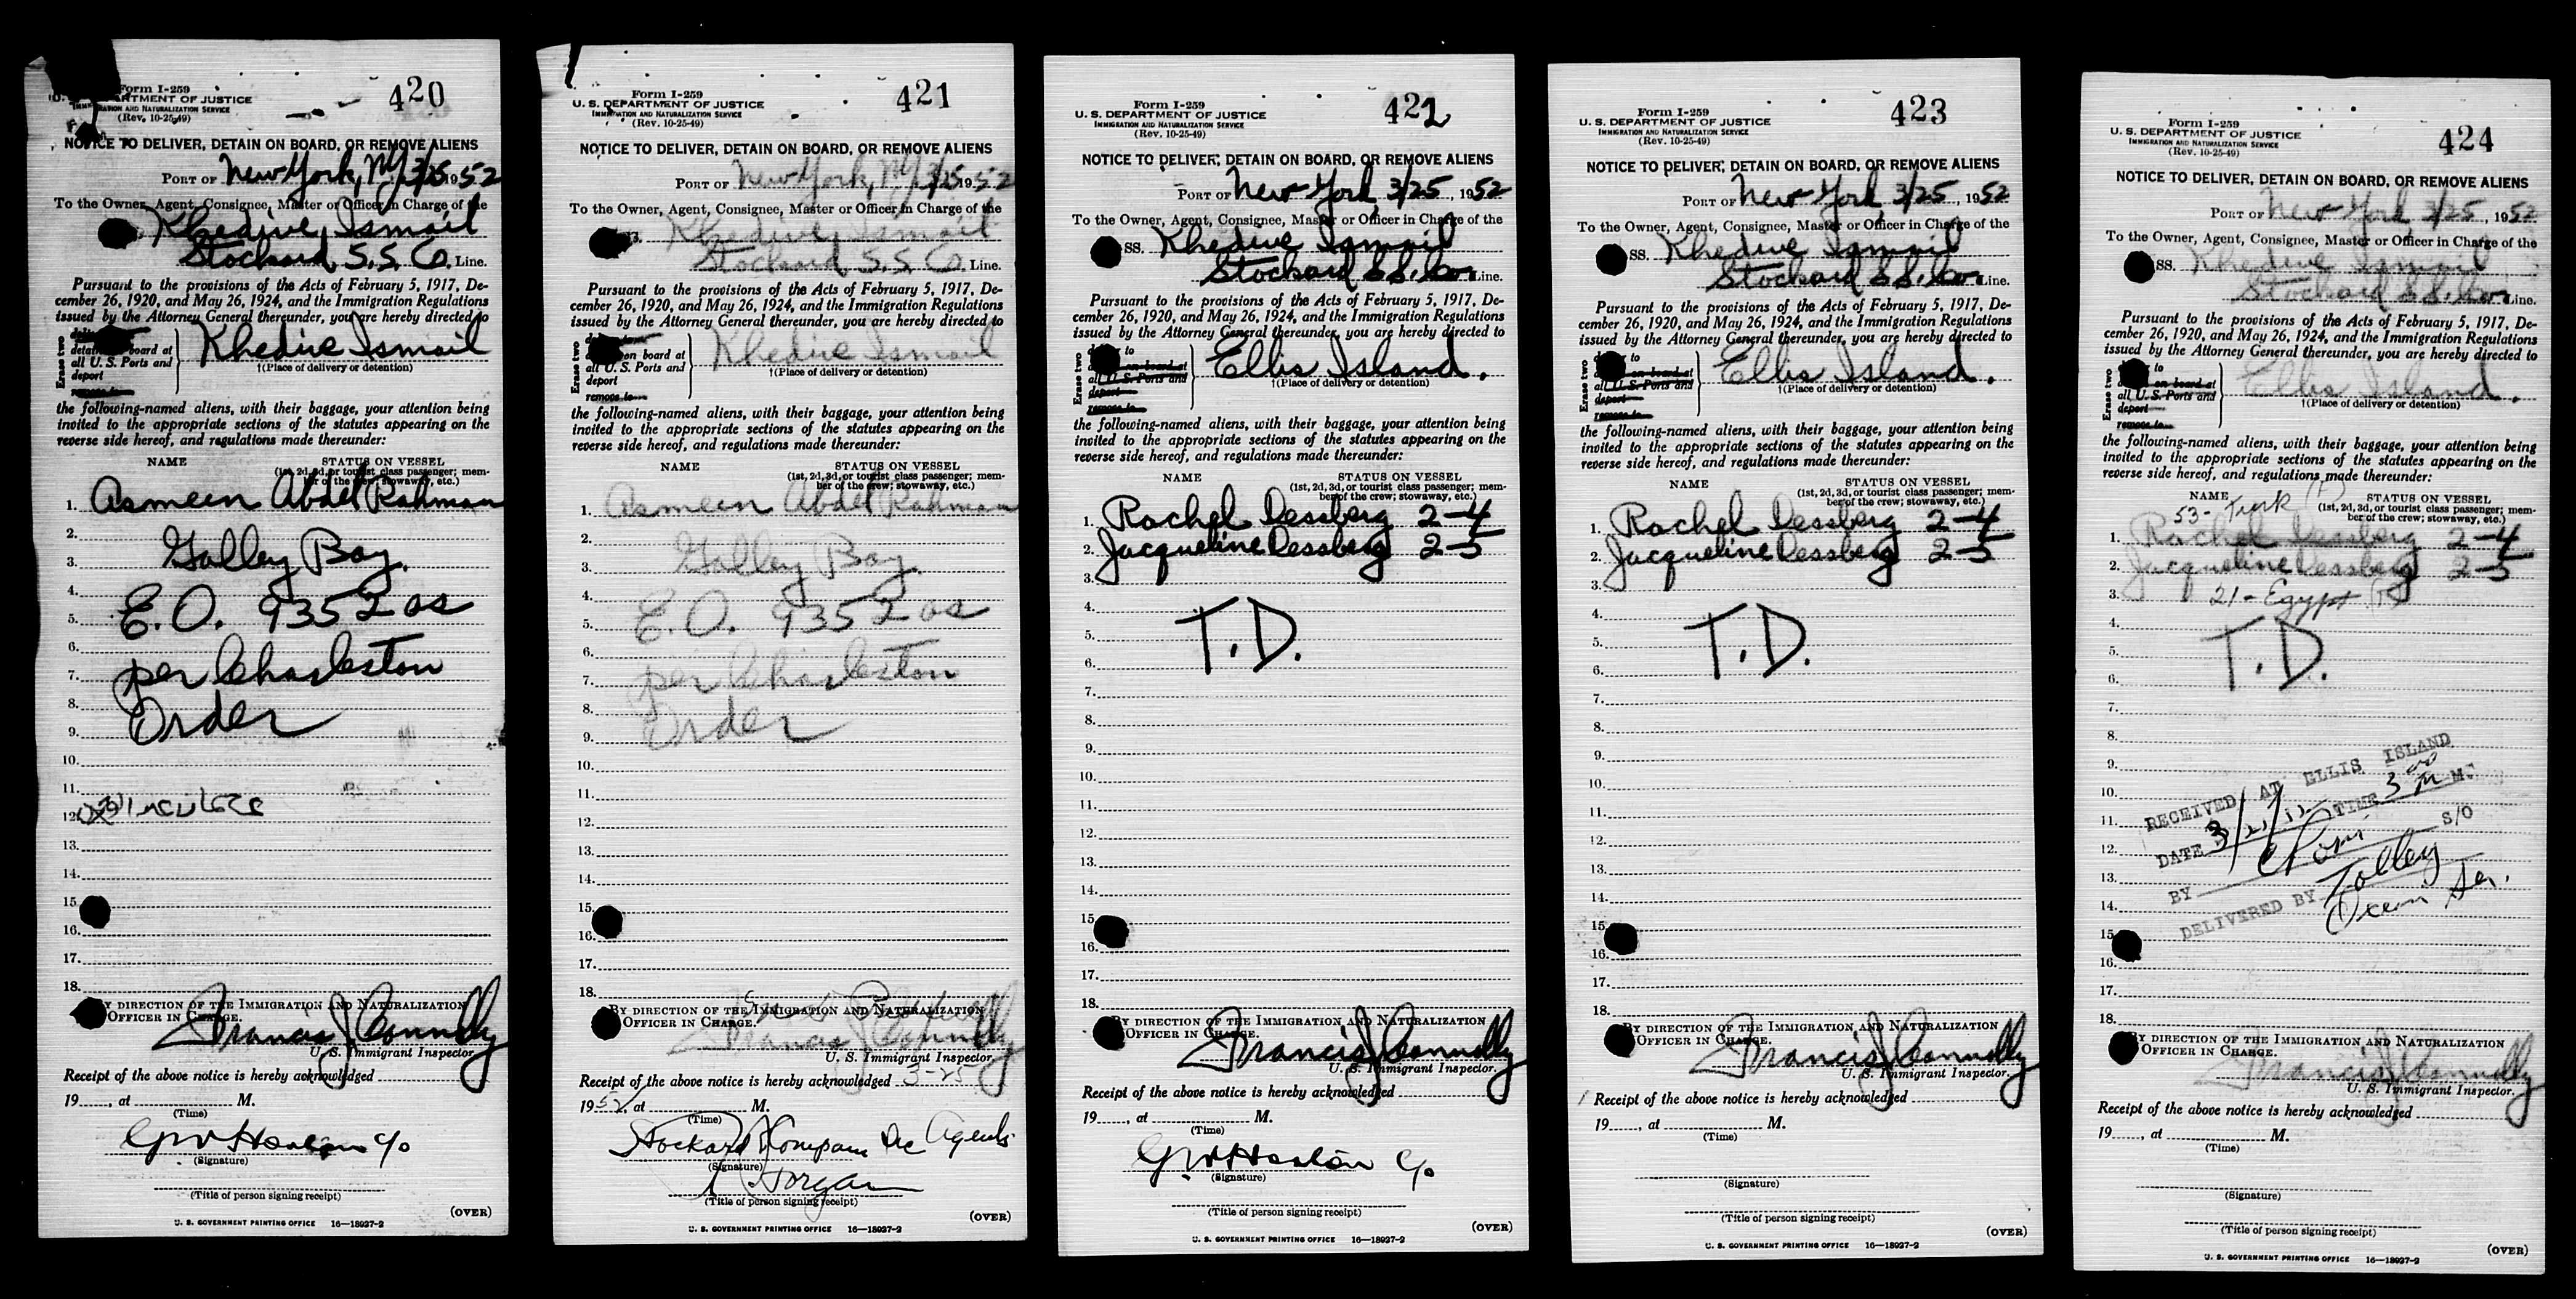 Form I-259
420
U. S. DEPARTMENT OF JUSTICE
IMMIGRATION AND NATURALIZATION SERVICE
(Rev. 10-25-49)
NOTICE TO DELIVER, DETAIN ON BOARD, OR REMOVE ALIENS
PORT OF New York, NY 3/25 1952
To the Owner, Agent, Consignee, Master or Officer in Charge of the
Khedive Ismail
Stockard S.S. Co. Line.
Pursuant to the provisions of the Acts of February 5, 1917, De-
cember 26, 1920, and May 26, 1924, and the Immigration Regulations
issued by the Attorney General thereunder, you are hereby directed to
Erase two
detain on board at
all U. S. Ports and
deport
remove to
Khedive Ismail
†(Place of delivery or detention)
the following-named aliens, with their baggage, your attention being
invited to the appropriate sections of the statutes appearing on the
reverse side hereof, and regulations made thereunder:
NAME STATUS ON VESSEL
(1st, 2d, 3d, or tourist class passenger; mem-
ber of the crew; stowaway, etc.)
1. Asmeen Abdel Rahman
2.
3. Galley Boy.
4.
5. E.O. 9352 as
6.
7. per Charleston
8.
9. Order
10.
11.
12.
13.
14.
15.
16.
17.
18.
BY DIRECTION OF THE IMMIGRATION AND NATURALIZATION
OFFICER IN CHARGE.
Francis J Connolly
U. S. Immigrant Inspector.
Receipt of the above notice is hereby acknowledged
19 , at M.
(Time)
(Signature)
(Title of person signing receipt)
(OVER)
U. S. GOVERNMENT PRINTING OFFICE 16—18927-2
Form I-259
421
U. S. DEPARTMENT OF JUSTICE
IMMIGRATION AND NATURALIZATION SERVICE
(Rev. 10-25-49)
NOTICE TO DELIVER, DETAIN ON BOARD, OR REMOVE ALIENS
PORT OF New York, NY 3/25 1952
To the Owner, Agent, Consignee, Master or Officer in Charge of the
Khedive Ismail
Stockard S.S. Co. Line.
Pursuant to the provisions of the Acts of February 5, 1917, De-
cember 26, 1920, and May 26, 1924, and the Immigration Regulations
issued by the Attorney General thereunder, you are hereby directed to
Erase two
on board at
all U. S. Ports and
deport
remove to
Khedive Ismail
†(Place of delivery or detention)
the following-named aliens, with their baggage, your attention being
invited to the appropriate sections of the statutes appearing on the
reverse side hereof, and regulations made thereunder:
NAME STATUS ON VESSEL
(1st, 2d, 3d, or tourist class passenger; mem-
ber of the crew; stowaway, etc.)
1. Asmeen Abdel Rahman
2.
3. Galley Boy.
4.
5. E.O. 9352 as
6.
7. per Charleston
8.
9. Order
10.
11.
12.
13.
14.
15.
16.
17.
18.
BY DIRECTION OF THE IMMIGRATION AND NATURALIZATION
OFFICER IN CHARGE.
Francis J Connolly
U. S. Immigrant Inspector.
Receipt of the above notice is hereby acknowledged 3-25
1952, at M.
(Time)
Stockard Company Inc Agents
(Signature)
(Title of person signing receipt)
(OVER)
U. S. GOVERNMENT PRINTING OFFICE 16—18927-2
Form I-259
422
U. S. DEPARTMENT OF JUSTICE
IMMIGRATION AND NATURALIZATION SERVICE
(Rev. 10-25-49)
NOTICE TO DELIVER, DETAIN ON BOARD, OR REMOVE ALIENS
PORT OF New York 3/25, 1952
To the Owner, Agent, Consignee, Master or Officer in Charge of the
SS. Khedive Ismail
Stockard SS. Co. Line.
Pursuant to the provisions of the Acts of February 5, 1917, De-
cember 26, 1920, and May 26, 1924, and the Immigration Regulations
issued by the Attorney General thereunder, you are hereby directed to
Erase two
to
on board at
all U. S. Ports and
deport
remove to
Ellis Island.
†(Place of delivery or detention)
the following-named aliens, with their baggage, your attention being
invited to the appropriate sections of the statutes appearing on the
reverse side hereof, and regulations made thereunder:
NAME STATUS ON VESSEL
(1st, 2d, 3d, or tourist class passenger; mem-
ber of the crew; stowaway, etc.)
1. Rachel Dessberg 2-4
2. Jacqueline Dessberg 2-5
3.
4.
5. T.D.
6.
7.
8.
9.
10.
11.
12.
13.
14.
15.
16.
17.
18.
BY DIRECTION OF THE IMMIGRATION AND NATURALIZATION
OFFICER IN CHARGE.
Francis J Connolly
U. S. Immigrant Inspector.
Receipt of the above notice is hereby acknowledged
19 , at M.
(Time)
(Signature)
(Title of person signing receipt)
(OVER)
U. S. GOVERNMENT PRINTING OFFICE 16—18927-2
Form I-259
423
U. S. DEPARTMENT OF JUSTICE
IMMIGRATION AND NATURALIZATION SERVICE
(Rev. 10-25-49)
NOTICE TO DELIVER, DETAIN ON BOARD, OR REMOVE ALIENS
PORT OF New York 3/25, 1952
To the Owner, Agent, Consignee, Master or Officer in Charge of the
SS. Khedive Ismail
Stockard SS. Co. Line.
Pursuant to the provisions of the Acts of February 5, 1917, De-
cember 26, 1920, and May 26, 1924, and the Immigration Regulations
issued by the Attorney General thereunder, you are hereby directed to
Erase two
to
on board at
all U. S. Ports and
deport
remove to
Ellis Island.
†(Place of delivery or detention)
the following-named aliens, with their baggage, your attention being
invited to the appropriate sections of the statutes appearing on the
reverse side hereof, and regulations made thereunder:
NAME STATUS ON VESSEL
(1st, 2d, 3d, or tourist class passenger; mem-
ber of the crew; stowaway, etc.)
1. Rachel Dessberg 2-4
2. Jacqueline Dessberg 2-5
3.
4.
5. T.D.
6.
7.
8.
9.
10.
11.
12.
13.
14.
15.
16.
17.
18.
BY DIRECTION OF THE IMMIGRATION AND NATURALIZATION
OFFICER IN CHARGE.
Francis J Connolly
U. S. Immigrant Inspector.
Receipt of the above notice is hereby acknowledged
19 , at M.
(Time)
(Signature)
(Title of person signing receipt)
(OVER)
U. S. GOVERNMENT PRINTING OFFICE 16—18927-2
Form I-259
424
U. S. DEPARTMENT OF JUSTICE
IMMIGRATION AND NATURALIZATION SERVICE
(Rev. 10-25-49)
NOTICE TO DELIVER, DETAIN ON BOARD, OR REMOVE ALIENS
PORT OF New York 3/25, 1952
To the Owner, Agent, Consignee, Master or Officer in Charge of the
SS. Khedive Ismail
Stockard SS. Co. Line.
Pursuant to the provisions of the Acts of February 5, 1917, De-
cember 26, 1920, and May 26, 1924, and the Immigration Regulations
issued by the Attorney General thereunder, you are hereby directed to
Erase two
to
on board at
all U. S. Ports and
deport
remove to
Ellis Island.
†(Place of delivery or detention)
the following-named aliens, with their baggage, your attention being
invited to the appropriate sections of the statutes appearing on the
reverse side hereof, and regulations made thereunder:
NAME STATUS ON VESSEL
53- Turk
(1st, 2d, 3d, or tourist class passenger; mem-
ber of the crew; stowaway, etc.)
1. Rachel Dessberg 2-4
2. Jacqueline Dessberg 2-5
3. 21- Egypt
4.
5. T.D.
6.
7.
8.
9.
10.
11.
12.
13.
14.
15.
16.
17.
18.
RECEIVED AT ELLIS ISLAND
DATE TIME 3 00 P M.
BY S/O
DELIVERED BY Tolley
Ocean Ser.
BY DIRECTION OF THE IMMIGRATION AND NATURALIZATION
OFFICER IN CHARGE.
Francis J Connolly
U. S. Immigrant Inspector.
Receipt of the above notice is hereby acknowledged
19 , at M.
(Time)
(Signature)
(Title of person signing receipt)
(OVER)
U. S. GOVERNMENT PRINTING OFFICE 16—18927-2